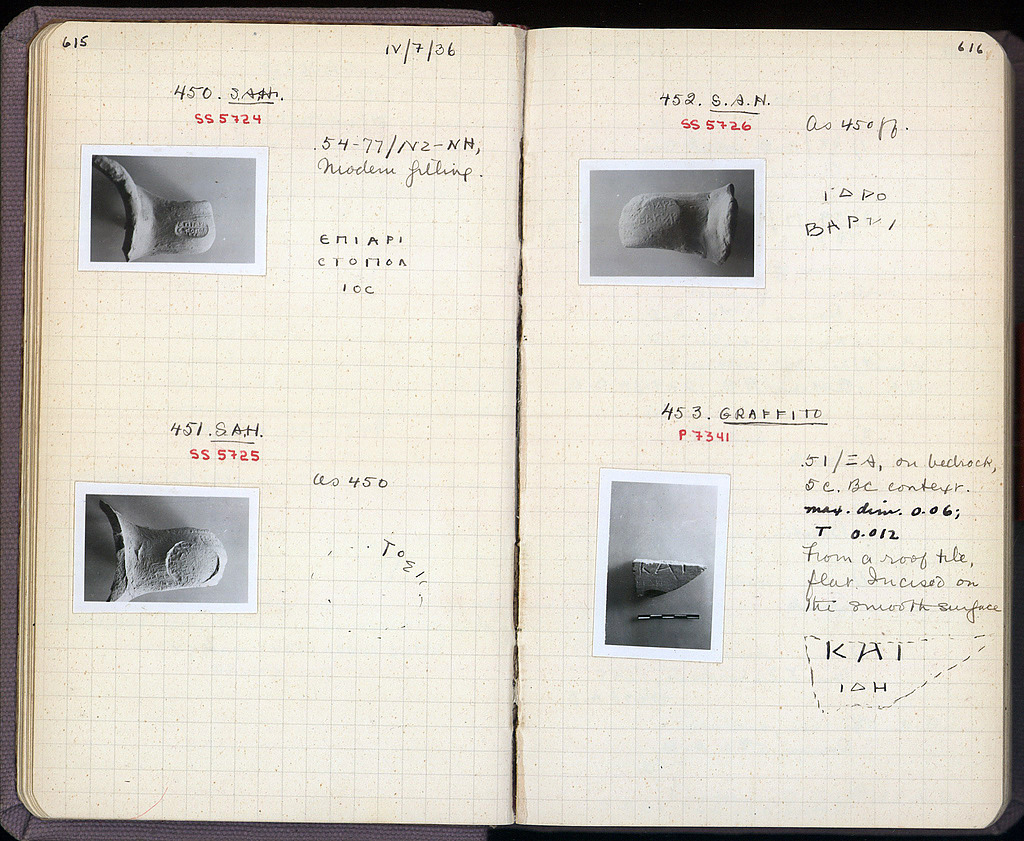 615
IV/7/36
450. S.A.H.
SS 5724
.54-77/ΝΖ-ΝΗ,
Modern filling.
ΕΠΙΑΡΙ
CΤΟΠΟΛ
ΙΟC
451. S.A.H.
SS 5725
as 450
616
452. S.A.H.
SS 5726
As 450ff.
ΒΑΡ
453. GRAFFITO
P 7341
.51/ΞΑ, on bedrock,
5 c. BC context.
max. dim. 0.06;
T 0.012
From a roof tile,
flat. Incised on
the smooth surface
ΚΑΙ
ΙΔΗ